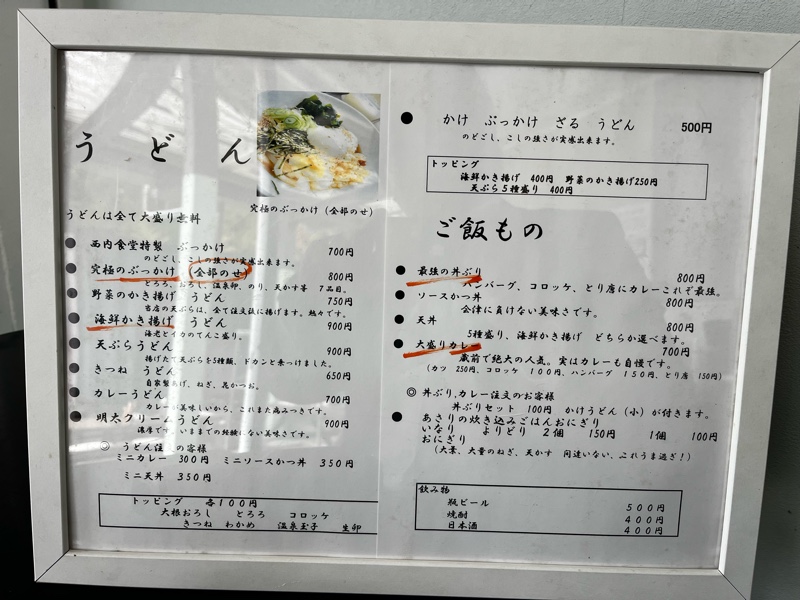 うどん
究極のぶっかけ（全部のせ）
うどんは全て大盛り無料
西内食堂特製　ぶっかけ　700円
のどごし、こしの強さが実感出来ます。
究極のぶっかけ（全部のせ）　800円
とろろ、おろし、温泉卵、のり、天かす等　7品目。
野菜のかき揚げ　うどん　750円
当店の天ぷらは、全て注文後に揚げます。熱々です。
海鮮かき揚げ　うどん　900円
海老とイカのてんこ盛り。
天ぷらうどん　900円
揚げたて天ぷらを5種類、ドカンと乗っけました。
きつね　うどん　650円
自家製あげ、ねぎ、昆かつお。
カレーうどん　700円
カレーが美味しいから、これまた病みつきです。
明太クリームうどん　900円
濃厚で、いままでの経験にない美味さです。
◎　うどん注　の客様
ミニカレー　300円　ミニソースかつ丼　350円
ミニ天丼　350円
トッピング　各100円
大根おろし　とろろ　コロッケ
きつね　わかめ　温泉玉子　生卵
かけ　ぶっかけ　ざる　うどん　500円
のどごし、こしの強さが実感出来ます。
トッピング
海鮮かき揚げ　400円　野菜のかき揚げ250円
天ぷら5種盛り　400円
ご飯もの
最強の丼ぶり　800円
ハンバーグ、コロッケ、とり唐にカレーこれぞ最強。
ソースかつ丼　800円
会津に負けない美味さです。
天丼　800円
5種盛り、海鮮かき揚げ　どちらか選べます。
大盛りカレー　700円
蔵前で絶大の人気。実はカレーも自慢です。
（カツ　250円、コロッケ　100円、ハンバーグ　150円、とり唐　150円）
◎　丼ぶり、カレー注文のお客様
丼ぶりセット　100円　かけうどん（小）が付きます。
あさりの炊き込みごはんおにぎり
いなり　よりどり　2個　150円　1個　100円
おにぎり
（大葉、大量のねぎ、天かす　間違いない、これうま過ぎ！）
飲み物
瓶ビール　500円
焼酎　400円
日本酒　400円